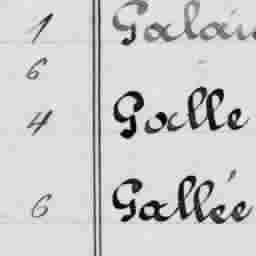 1 Galai
6
4 Galle
6 Gallée